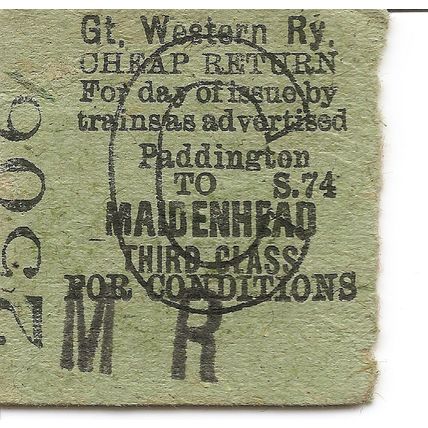 Gt. Western Ry.
CHEAP RETURN
For day of issue by
trains as advertised
Paddington
TO S.74
MAIDENHEAD
THIRD CLASS
FOR CONDITIONS
M R
2506
C